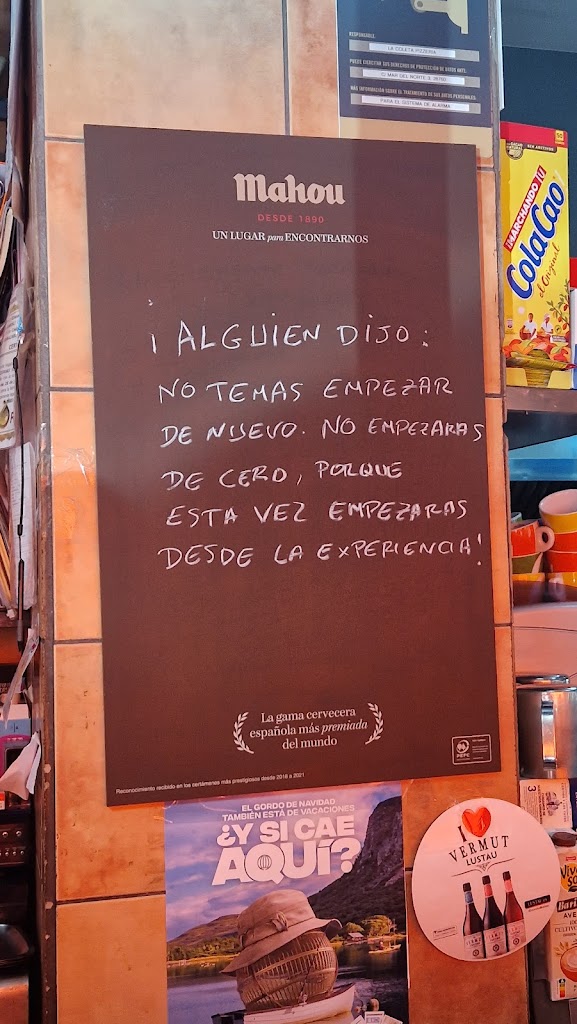 RESPONSABLE.
LA COLETA PIZZERIA
PUEDE EJERCITAR SUS DERECHOS DE PROTECCIÓN DE DATOS ANTE:
C/ MAR DEL NORTE 3. 28760
MÁS INFORMACIÓN SOBRE EL TRATAMIENTO DE SUS DATOS PERSONALES:
PARA EL SISTEMA DE ALARMA
Mahou
DESDE 1890
UN LUGAR para ENCONTRARNOS
¡ALGUIEN DIJO:
NO TEMAS EMPEZAR
DE NUEVO. NO EMPEZARAS
DE CERO, PORQUE
ESTA VEZ EMPEZARAS
DESDE LA EXPERIENCIA!
La gama cervecera
española más premiada
del mundo
Reconocimiento recibido en los certámenes más prestigiosos desde 2018 a 2021
MARCHANDO 1U
ColaCao
el Original
EL GORDO DE NAVIDAD
TAMBIÉN ESTÁ DE VACACIONES
¿Y SI CAE
AQUÍ?
I
VERMUT
LUSTAU